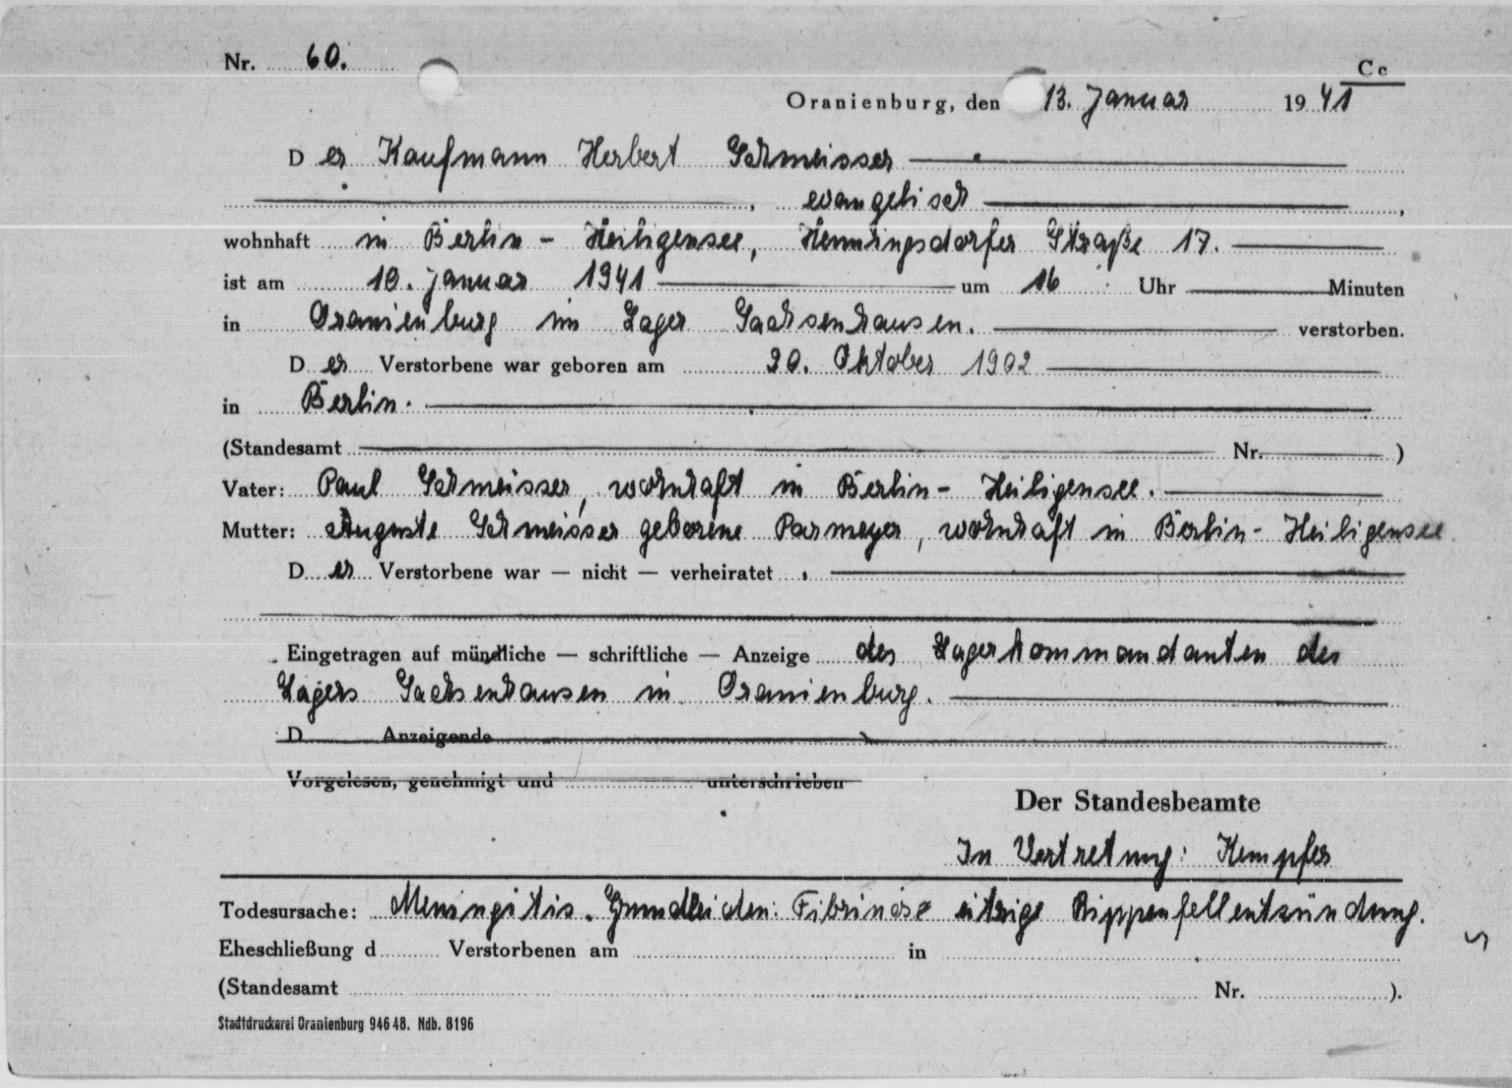 Nr. 60.
Cc
Oranienburg, den 13. Januar 1941
Der Kaufmann Herbert Schmeisser
, evangelisch ,
wohnhaft in Berlin - Heiligensee, Henningsdorfer Straße 17.
ist am 10. Januar 1941 um 16 Uhr Minuten
in Oranienburg im Lager Sachsenhausen. verstorben.
Der Verstorbene war geboren am 20. Oktober 1902
in Berlin.
(Standesamt Nr. )
Vater: Paul Schmeisser, wohnhaft in Berlin - Heiligensee.
Mutter: Auguste Schmeisser geborene Parmeyer, wohnhaft in Berlin - Heiligensee.
Der Verstorbene war — nicht — verheiratet.
Eingetragen auf mündliche — schriftliche — Anzeige des Lagerkommandanten des
Lagers Sachsenhausen in Oranienburg.
D Anzeigende
Vorgelesen, genehmigt und unterschrieben
Der Standesbeamte
In Vertretung: Kempfer
Todesursache: Meningitis. Grundleiden: Fibrinöse eitrige Rippenfellentzündung.
Eheschließung d Verstorbenen am in
(Standesamt Nr. ).
Stadtdruckerei Oranienburg 946 48. Ndb. 8196